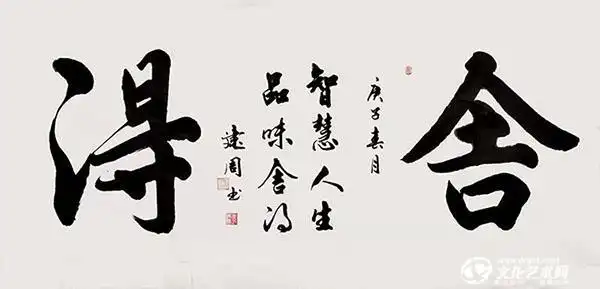 舍
庚子春月
智慧人生
品味舍得
建周书
得
文化艺术网